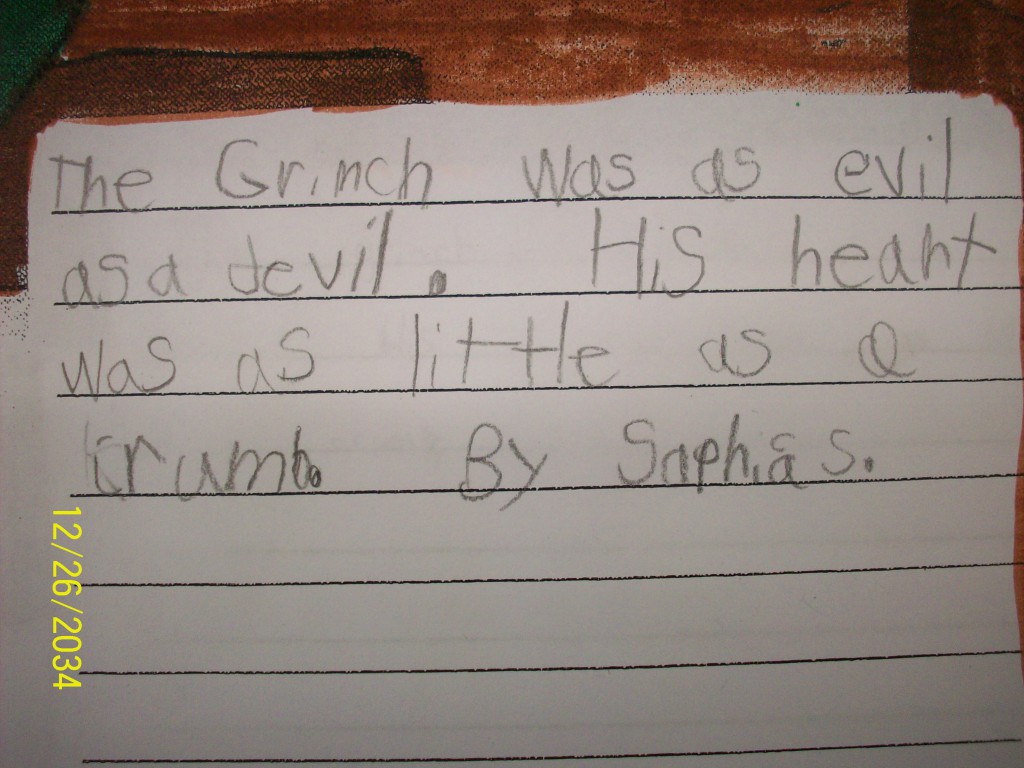 The Grinch was as evil
as a devil. His heart
was as little as a
crumb. By Sophia S.
12/26/2034